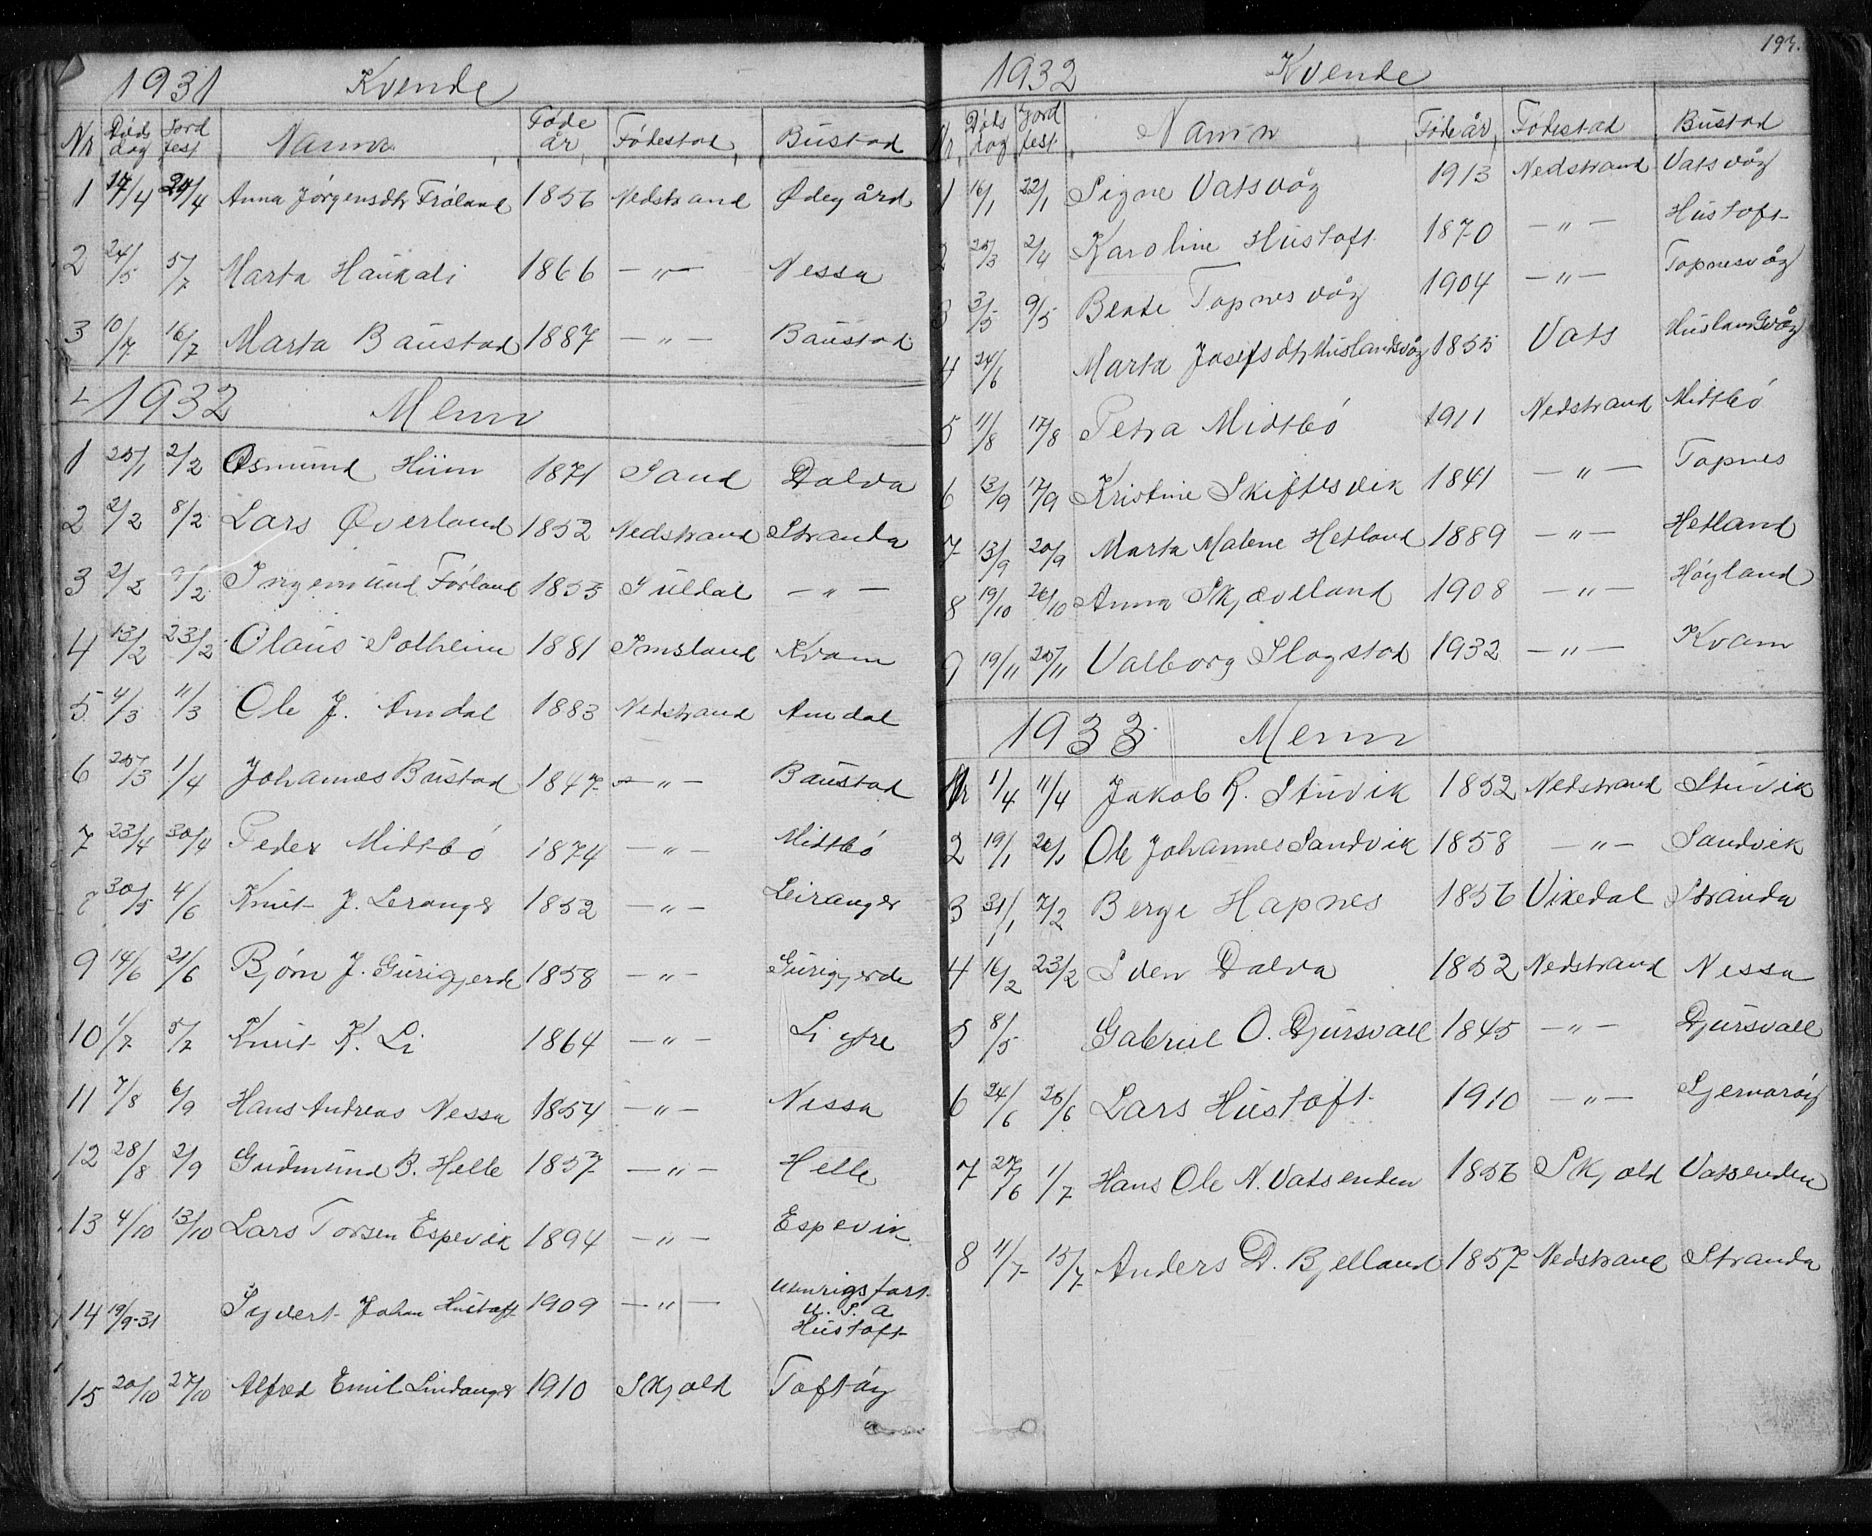 1931 Kvende
Nr Døds dag Jord fest Namn Føde år Fødestad Bustad
1 17/4 24/4 Anna Jørgensdtr Frøland 1856 Nedstrand Ødegård
2 24/5 5/7 Marta Haukali 1866 —〃— Nessa
3 10/7 16/7 Marta Baustad 1887 —〃— Baustad
1932 Menn
1 25/1 2/2 Osmund Hiim 1871 Sand Dalva
2 2/2 8/2 Lars Øverland 1852 Nedstrand Stranda
3 2/2 9/2 Ingemund Førland 1855 Suldal —〃—
4 13/2 23/2 Olaus Solheim 1881 Imsland Kvam
5 4/3 11/3 Ole J. Amdal 1883 Nedstrand Amdal
6 25/3 1/4 Johannes Bustad 1847 —〃— Baustad
7 23/4 30/4 Peder Midtbø 1874 —〃— Midtbø
8 30/5 4/6 Knut J. Leranger 1852 —〃— Leiranger
9 14/6 21/6 Bjørn J. Gurigjerde 1858 —〃— Gurigjerde
10 1/7 5/7 Knut K. Li 1864 —〃— Li ytre
11 7/8 6/9 Hans Andreas Nessa 1854 —〃— Nessa
12 28/8 2/9 Gudmund B. Helle 1857 —〃— Helle
13 4/10 13/10 Lars Torsen Espevik 1894 —〃— Espevik
14 19/9-31 Syvert Johan Hustoft 1909 —〃— utanrigsfart
U.S.A
Hustoft
15 20/10 27/10 Alfred Emil Lindanger 1910 Skjold Toftøy
193.
1932 Kvende
Nr Døds dag Jord fest Namn Fødeår Fødestad Bustad
1 16/1 22/1 Signe Vatsvåg 1913 Nedstrand Vatsvåg
2 25/3 2/4 Karoline Hustoft 1870 —〃— Hustoft
3 3/5 9/5 Berte Topnesvåg 1904 —〃— Topnesvåg
4 24/6 Marta Josefsdtr Huslandsvåg 1855 Vats Huslandsvåg
5 11/8 17/8 Petra Midtbø 1911 Nedstrand Midtbø
6 13/9 17/9 Kristine Skiftesvik 1841 —〃— Topnes
7 13/9 20/9 Marta Malene Hetland 1889 —〃— Hetland
8 19/10 26/10 Anna Skjæveland 1908 —〃— Høyland
9 19/11 25/11 Valborg Slogstad 1932 —〃— Kvam
1933 Menn
Nr 1/4 11/4 Jakob R. Stuvik 1852 Nedstrand Stuvik
2 19/1 26/1 Ole Johannes Sandvik 1858 —〃— Sandvik
3 31/1 7/2 Berge Hapnes 1856 Vikedal Stranda
4 16/2 23/2 Sven Dalva 1852 Nedstrand Nessa
5 8/5 Gabriel O. Djursvall 1845 —〃— Djursvall
6 24/6 26/6 Lars Hustoft 1910 —〃— Sjernarøy
7 27/6 1/7 Hans Ole N. Vatsenden 1856 Skjold Vatsenden
8 11/7 15/7 Anders D. Bjelland 1857 Nedstrand Stranda